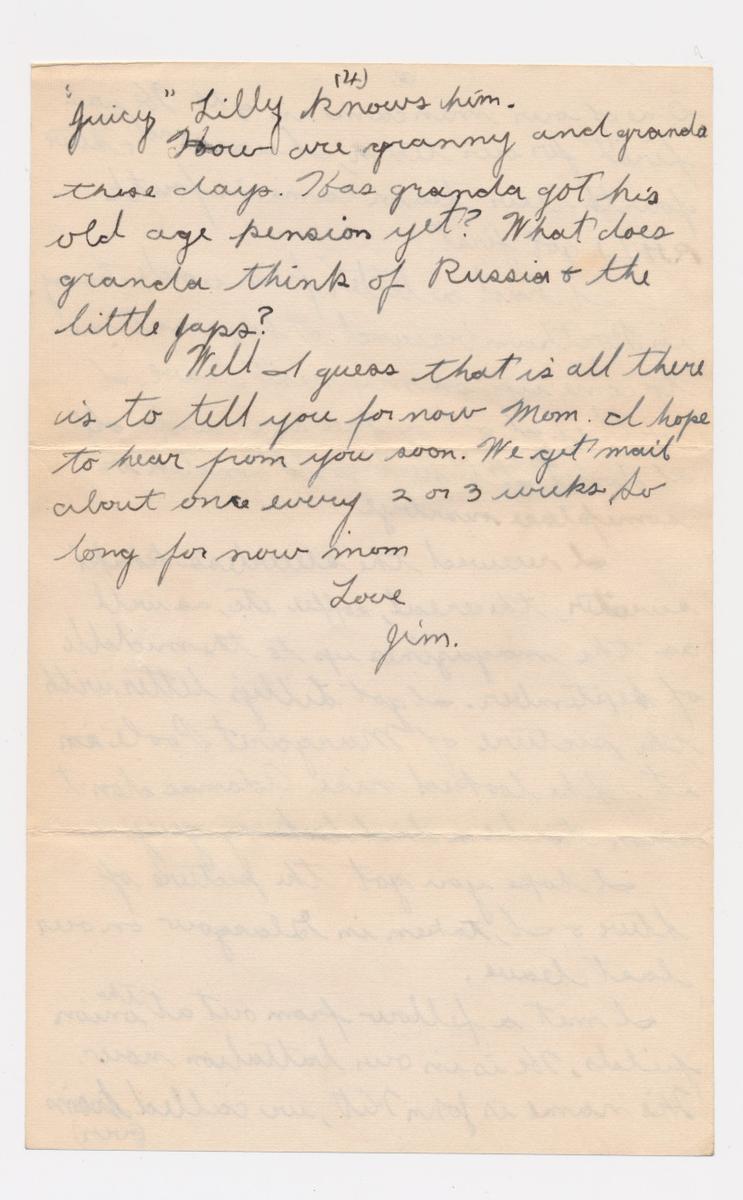 (4)
"Juicy" Lilly knows him.
How are granny and granda
these days. Has granda got his
old age pension yet? What does
granda think of Russia & the
little Japs?
Well I guess that is all there
is to tell you for now Mom. I hope
to hear from you soon. We get mail
about once every 2 or 3 weeks, So
long for now mom
Love
Jim.